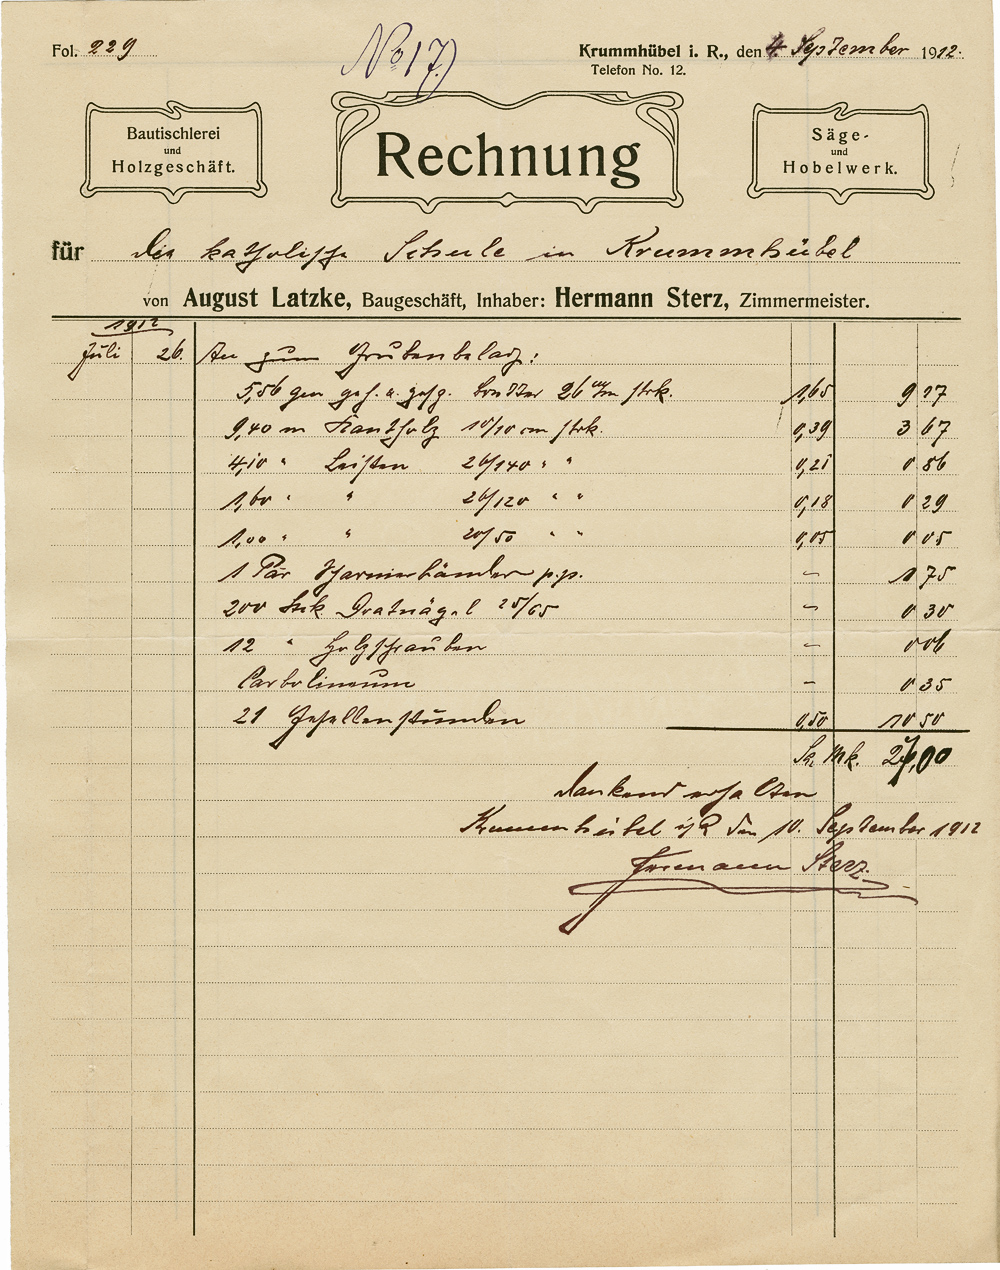 Fol. 229
No 17.)
Krummhübel i. R., den 4. September 1912.
Telefon No. 12.
Bautischlerei
und
Holzgeschäft.
Rechnung
Säge-
und
Hobelwerk.
für die katholische Schule in Krummhübel
von August Latzke, Baugeschäft, Inhaber: Hermann Sterz, Zimmermeister.
1912
Juli 26. An zum Grubenbelag:
5,56 qm geh. u. gesp. Bretter 26 m/m strk. 1,65 9 17
9,40 m Kantholz 10/10 cm strk. 0,39 3 67
4,10 " Leisten 26/140 " " 0,21 0 86
1,60 " " 26/120 " " 0,18 0 29
1,00 " " 20/50 " " 0,05 0 05
1 Par Scharnierbänder p.p. – 1 75
200 Stck Dratnägel 25/65 – 0 30
12 " Holzschrauben – 0 06
Carbolineum – 0 35
21 Gesellenstunden 0,50 10 50
Sa. Mk. 27,00
dankend erhalten
Krummhübel i/R den 10. September 1912
Hermann Sterz.